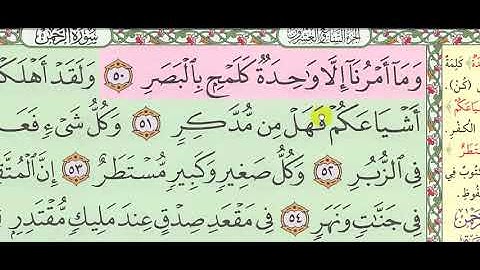 سُورَةُ الرَّحْمٰن
الجزء السابع والعشرون
وَمَآ أَمْرُنَآ إِلَّا وَٰحِدَةٌ كَلَمْحٍۭ بِٱلْبَصَرِ ٥٠ وَلَقَدْ أَهْلَكْ
أَشْيَاعَكُمْ فَهَلْ مِن مُّدَّكِرٍ ٥١ وَكُلُّ شَىْءٍ فَعَ
فِى ٱلزُّبُرِ ٥٢ وَكُلُّ صَغِيرٍ وَكَبِيرٍ مُّسْتَطَرٌ ٥٣ إِنَّ ٱلْمُتَّ
فِى جَنَّٰتٍ وَنَهَرٍ ٥٤ فِى مَقْعَدِ صِدْقٍ عِندَ مَلِيكٍ مُّقْتَدِرٍۭ
كلمة
(كُنْ).
أَشْيَاعَكُمْ
الكفر